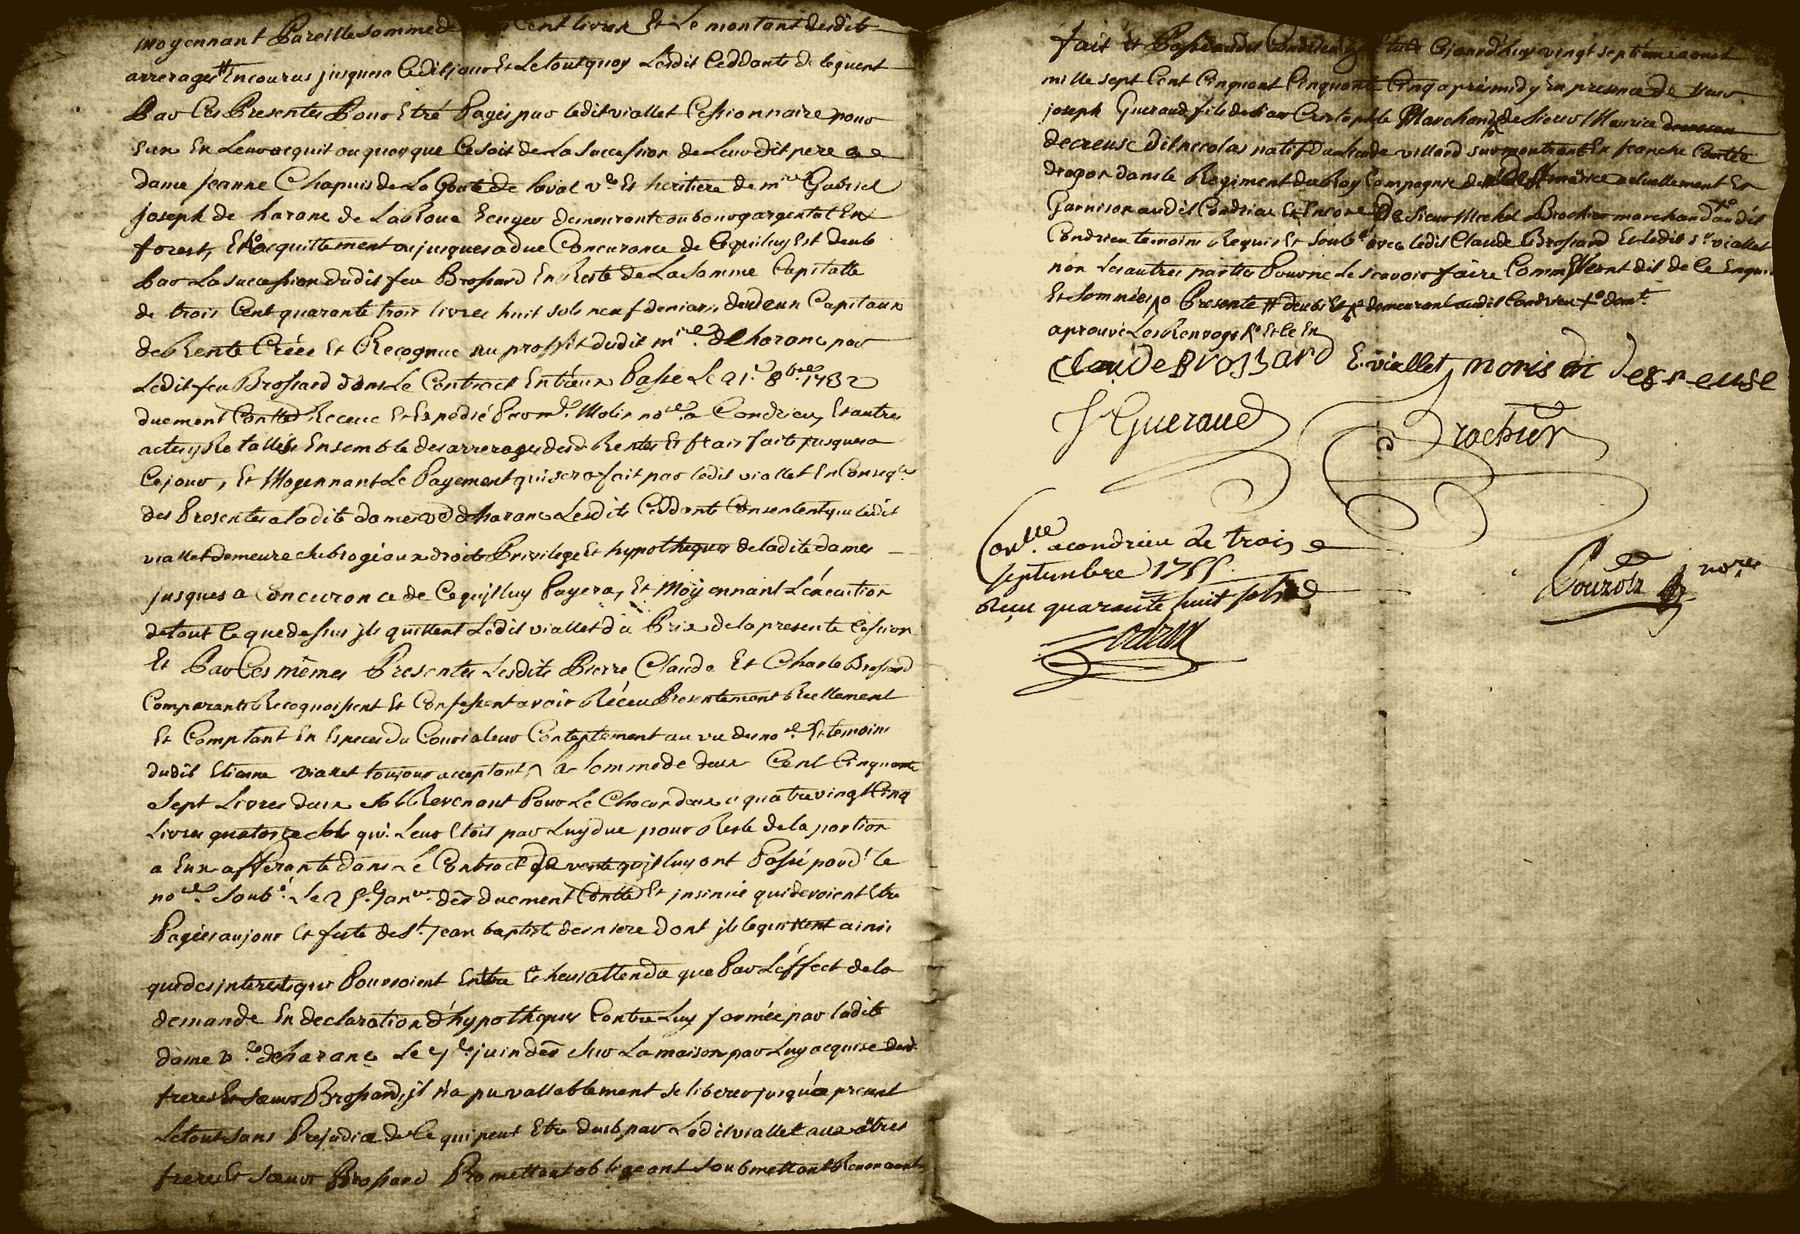 moyennant Pareille somme de cent livres Et Le montant desdits
arrerages Encourus jusques a Ceditjour Et Letout quoy Lesdit Ceddants deleguent
Par Ces Presentes Pour Etre Payés par ledit viallet Cessionnaire pour
Eux En Leur acquit ou quoyque Cesoit de La Succession de Leur dit pere a
dame jeanne Chapuis de La Goute de laval v.e Et heritiere de m.re Gabriel
joseph de harane de LaRoue Ecuyer demeurante au bourg argental En
forest, Et acquittement ou jusques a due Concurance de Cequiluy Est deub
Par La succession dudit feu Brossard En Reste de La Somme Capitalle
de trois Cent quarante trois livres huit sols neuf deniers, de deux Capitaux
de Rente Créée Et Recognue au proffit dudit m.re de harane par
Ledit feu Brossard dans Le Contract Entreux Passé Le 21.e 8bre 1732
duement Contllé Receue Et Expedié Par m.e Molin no.re a Condrieu, Et autres
actes y Relattés Ensemble des arrerages desd Rentes Et frais faits jusques a
Cejour, Et Moyennant Le Payement qui sera fait par ledit viallet En Conseq.ce
des Presentes a ladite dame v.e de harane Lesdits Ceddants Consentent que ledit
viallet demeure subrogé aux droits Privilege Et hypotheques de ladite dame
jusques a Concurance de Cequ'jl luy Payera, Et Moyennant L'execution
de tout Ce que dessus jls quittent Ledit viallet du Prix de la presente Cession
Et Par Ces mêmes Presentes Lesdits Pierre Claude Et Charle Brossard
Comparants Recognoissent Et Confessent avoir Réceu Presentement Reellement
Et Comptant En Especes du Cours a leur Contentement au vu des no.re Et temoins
dudit Etienne viallet toujours acceptant La Somme de deux Cent Cinquante
Sept Livres deux sols Revenant Pour Le Chacun deux a quatre vingt Cinq
Livres quatorze sols qui Leur Etois par Luy due pour Reste de la portion
a Eux afferante dans Le Contract de vente qu'jls luy ont Passé pard.t le
no.re Soub.é Le 25.e Jan.er der duement Contllé Et jnsinué qui devoient Etre
Payés au jour Et feste de S.t Jean baptiste derniere dont jls le quittent ainsi
que des jnterests qui Pourroient Entre Echeus attendu que Par L'effect de la
demande En declaration d'hypotheques Contre Luy formée par ladite
dame v.e de harane Le 7.e juin der Sur La maison par Luy acquise desd.
freres Et sœurs Brossard, jl n'a pu vallablement se liberer jusqu'a present
Letout sans Prejudice de Ce qui peut Etre deub par Ledit viallet aux autres
freres Et sœurs Brossard Promettant obligeant Soubmettant Renonceant
fait Et Passé audit Condrieu Etude Cejourd'huy vingt septieme aoust
mille sept Cent Cinquant Cinquante Cinq après midy En presence de Sieur
joseph Gueraud fils de sieur Cristophle Marchand de Sieur Maurice
decreuse dit nicolas natif du lieu de villard sur montrant En franche Comté
dragon dans le Regiment du Roy Compagnie de actuellement En
Garnison audit Condrieu Et Encore De Sieur Michel Brochier marchand audit
Condrieu temoins Requis Et Soub.é avec ledit Claude Brossard Et ledit s.r viallet
non Les autres parties Pour ne Le scavoir faire Comme ont dit de Ce Enquis
Et Sommées Presente deub Et demeurant audit Condrieu
aprouvé Les Renvoys Et Le En
Claude Brossard E. viallet moris dit decreuse
J Gueraud Brochier
Con.llé a condrieu Le trois
septembre 1755.
Reçu quarante huit sols